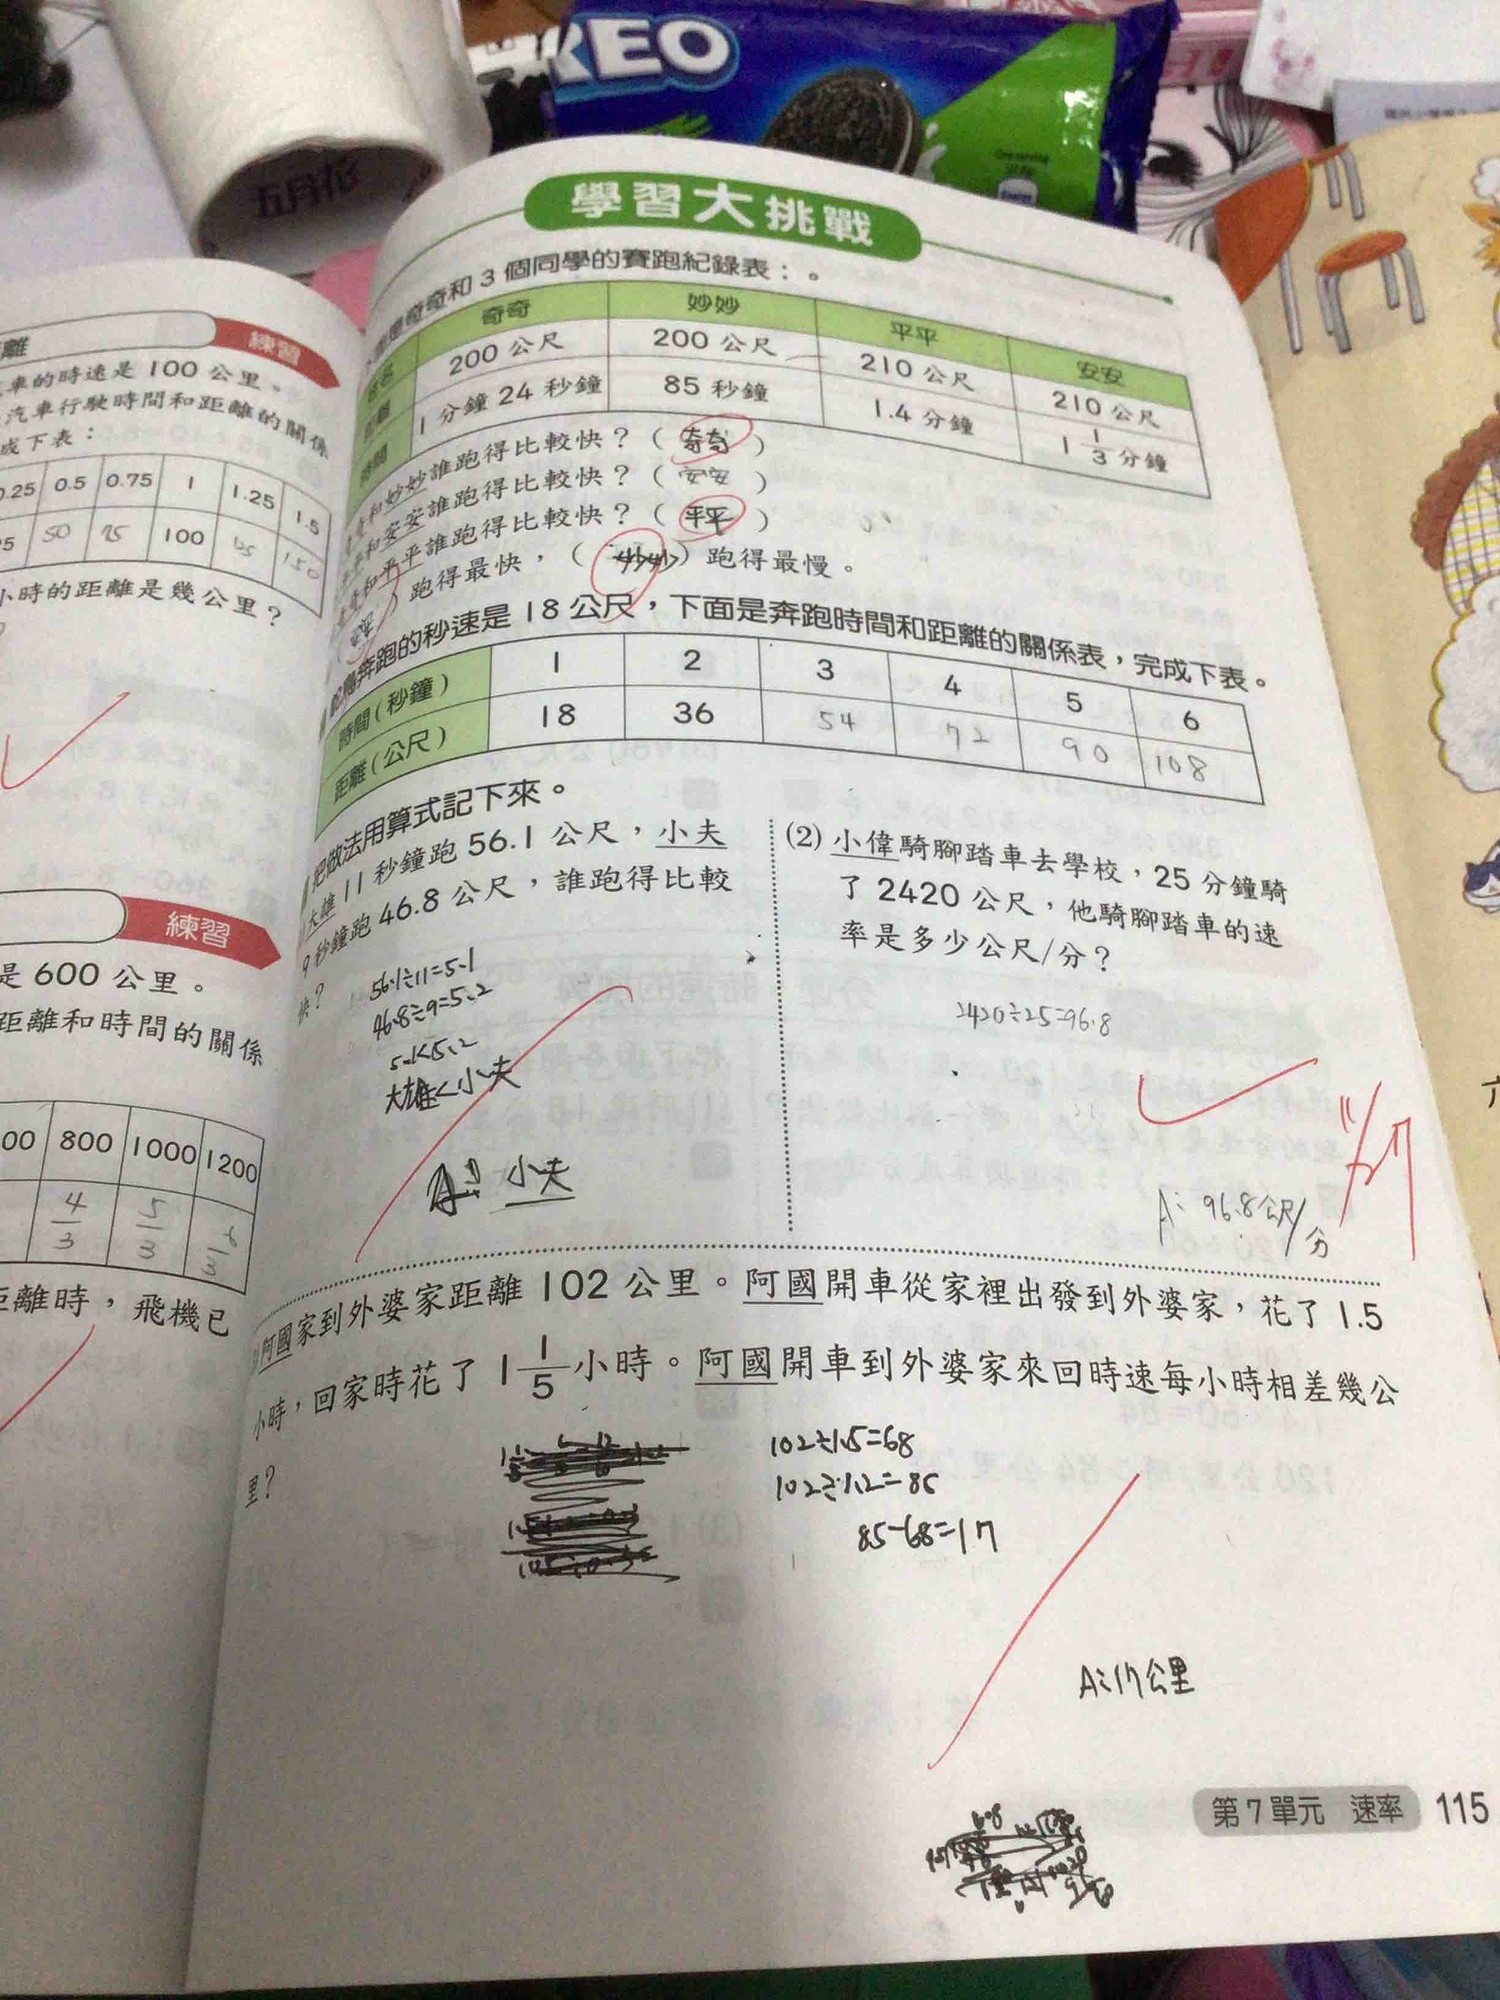 OREO
五月花
離
練習
車的時速是100公里。
汽車行駛時間和距離的關係
成下表：
0.25 0.5 0.75 1 1.25 1.5
25 50 75 100 125 150
小時的距離是幾公里？
練習
是600公里。
距離和時間的關係
00 800 1000 1200
4/3 5/3 6/3
距離時，飛機已
學習大挑戰
是奇奇和3個同學的賽跑紀錄表：。
姓名 奇奇 妙妙 平平 安安
距離 200公尺 200公尺 210公尺 210公尺
時間 1分鐘24秒鐘 85秒鐘 1.4分鐘 1 1/3 分鐘
和妙妙誰跑得比較快？（奇奇）
和安安誰跑得比較快？（安安）
和平平誰跑得比較快？（平平）
）跑得最快，（妙妙）跑得最慢。
奔跑的秒速是18公尺，下面是奔跑時間和距離的關係表，完成下表。
時間(秒鐘) 1 2 3 4 5 6
距離(公尺) 18 36 54 72 90 108
把做法用算式記下來。
大雄11秒鐘跑56.1公尺，小夫
9秒鐘跑46.8公尺，誰跑得比較
快？
56.1÷11=5.1
46.8÷9=5.2
5.1<5.2
大雄<小夫
A: 小夫
(2) 小偉騎腳踏車去學校，25分鐘騎
了2420公尺，他騎腳踏車的速
率是多少公尺/分？
2420÷25=96.8
A: 96.8公尺/分
阿國家到外婆家距離102公里。阿國開車從家裡出發到外婆家，花了1.5
小時，回家時花了1 1/5 小時。阿國開車到外婆家來回時速每小時相差幾公
里？
102÷1.5=68
102÷1.2=85
85-68=17
A:17公里
第7單元 速率 115